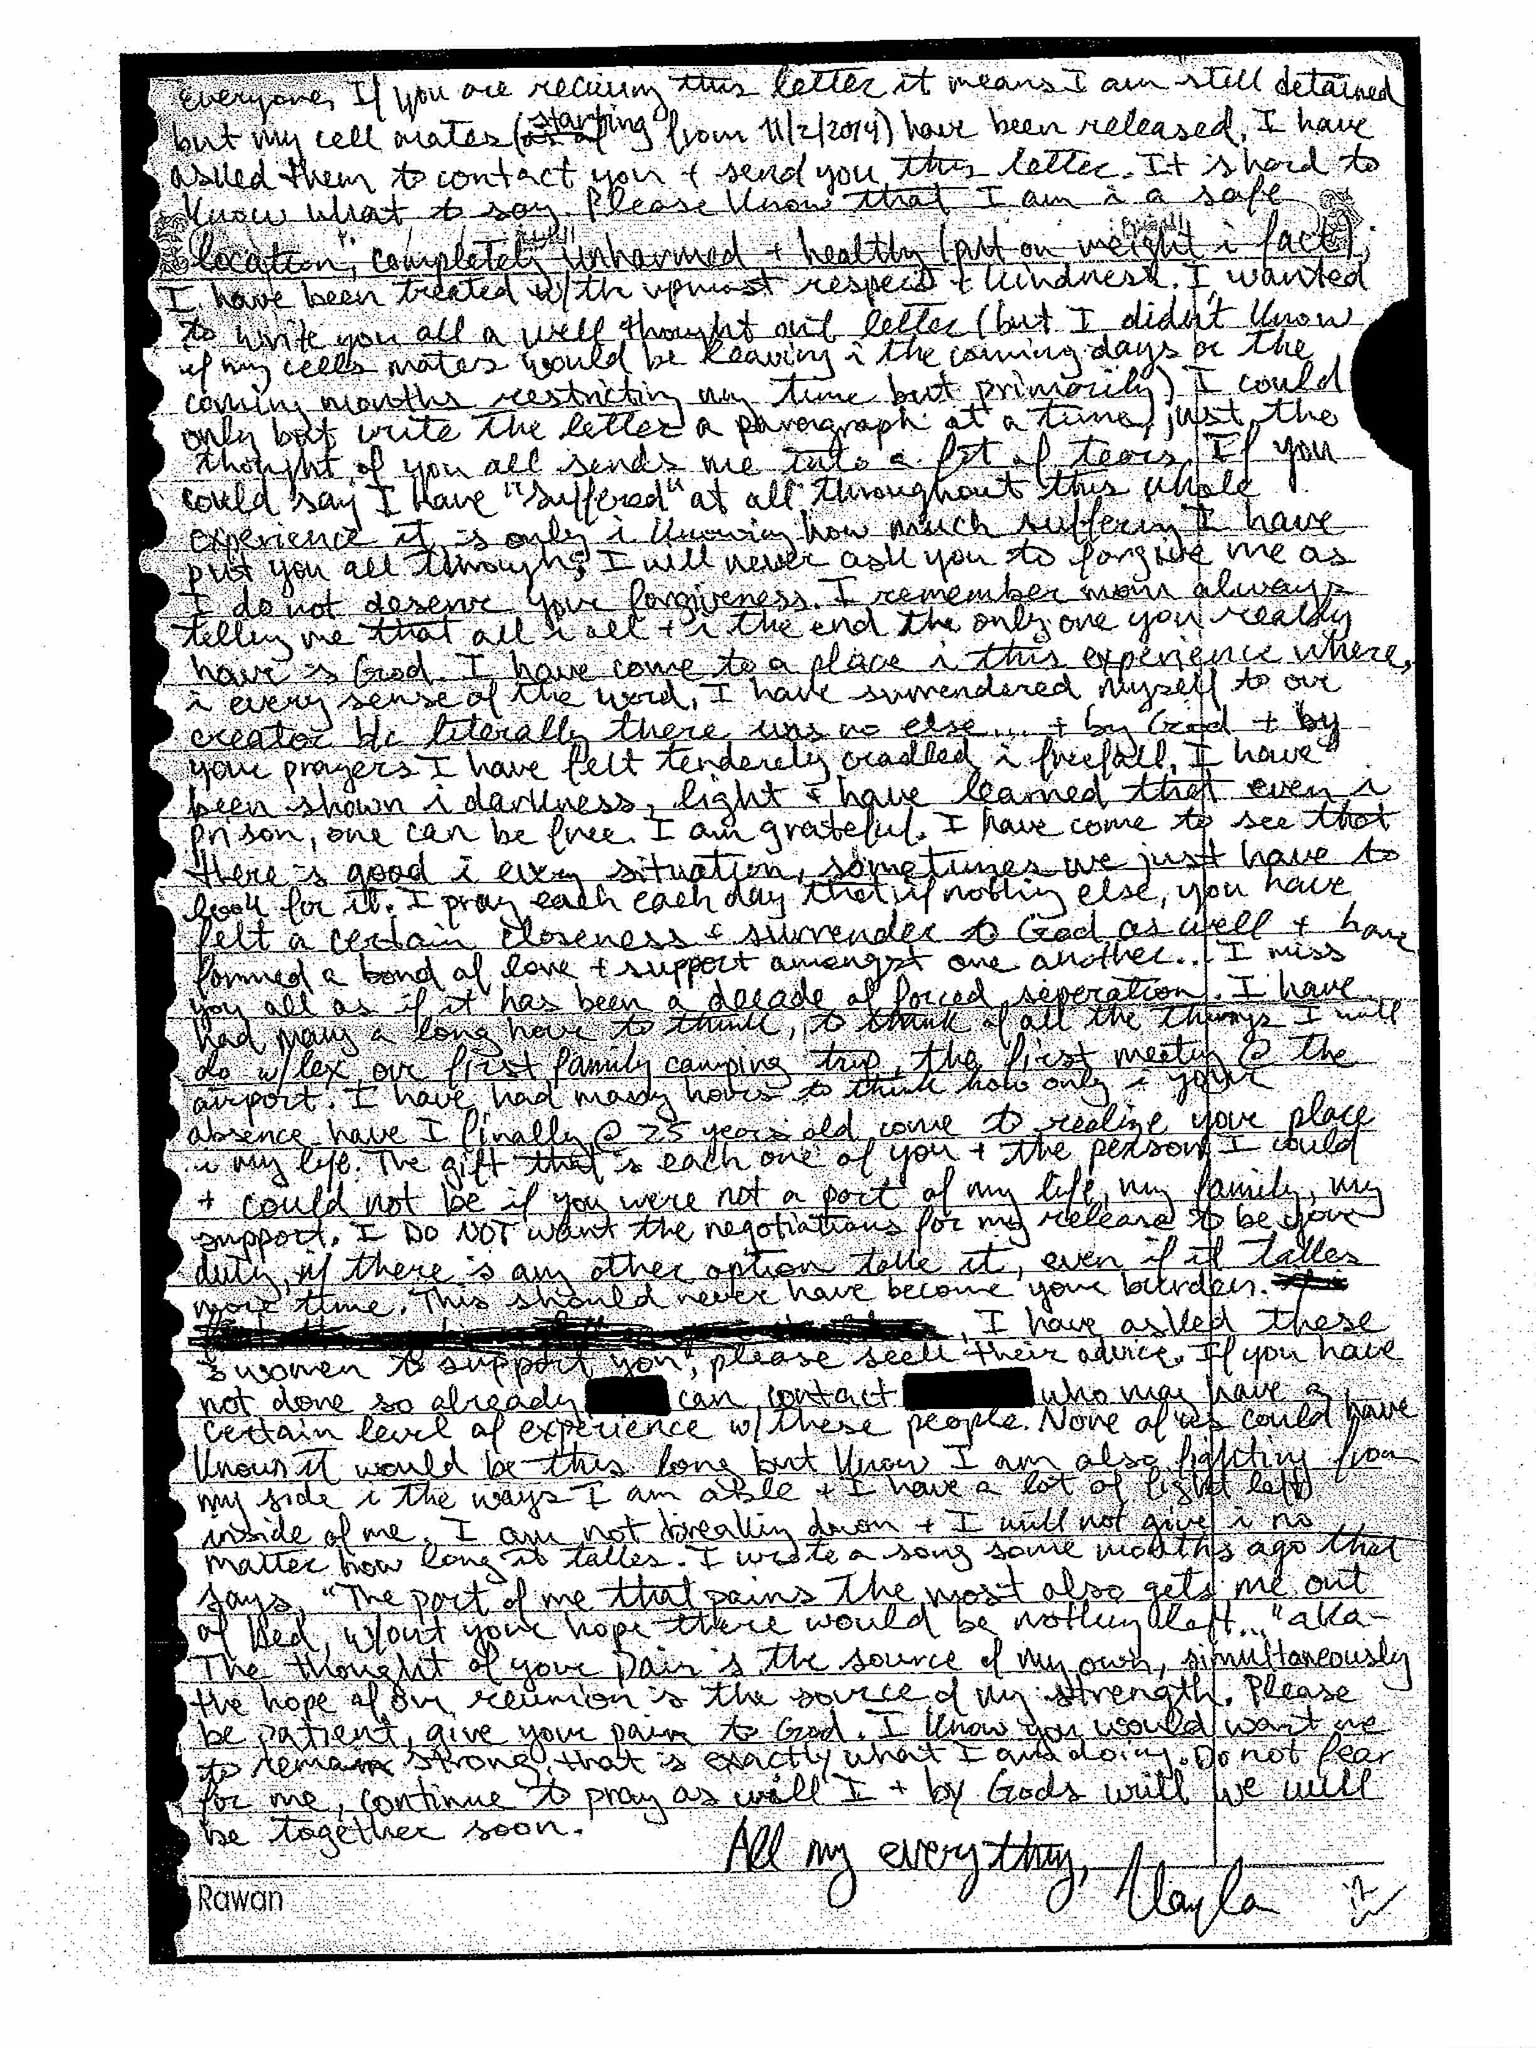 everyone, If you are receiving this letter it means I am still detained
but my cell mates (as of starting from 11/2/2014) have been released. I have
asked them to contact you + send you this letter. It is hard to
know what to say. Please know that I am i a safe
location, completely unharmed + healthy (put on weight i fact);
I have been treated w/ the upmost respect + kindness. I wanted
to write you all a well thought out letter (but I didn't know
if my cells mates would be leaving i the coming days or the
coming months restricting my time but primarily) I could
only but write the letter a paragraph at a time, just the
thought of you all sends me into a fit of tears. If you
could say I have "suffered" at all throughout this whole
experience it is only i knowing how much suffering I have
put you all through; I will never ask you to forgive me as
I do not deserve your forgiveness. I remember mom always
telling me that all i all + i the end the only one you really
have is God. I have come to a place i this experience where,
i every sense of the word, I have surrendered myself to our
creator b/c literally there was no else.... + by God + by
your prayers I have felt tenderly cradled i freefall. I have
been shown i darkness, light + have learned that even i
prison, one can be free. I am grateful. I have come to see that
there is good i every situation, sometimes we just have to
look for it. I pray each each day that if nothing else, you have
felt a certain closeness + surrender to God as well + have
formed a bond of love + support amongst one another... I miss
you all as if it has been a decade of forced seperation. I have
had many a long hour to think, to think of all the things I will
do w/ Lex, our first family camping trip, the first meeting @ the
airport. I have had many hours to think how only i your
absence have I finally @ 25 years old come to realize your place
i my life. The gift that is each one of you + the person I could
+ could not be if you were not a part of my life, my family, my
support. I DO NOT want the negotiations for my release to be your
duty, if there is any other option take it, even if it takes
more time. This should never have become your burden.
, I have asked these
women to support you; please seek their advice. If you have
not done so already can contact who may have a
certain level of experience w/ these people. None of us could have
known it would be this long but know I am also fighting from
my side i the ways I am able + I have a lot of fight left
inside of me. I am not breaking down + I will not give i no
matter how long it takes. I wrote a song some months ago that
says, "The part of me that pains the most also gets me out
of bed, w/out your hope there would be nothing left..." aka-
The thought of your pain is the source of my own, simultaneously
the hope of our reunion is the source of my strength. Please
be patient, give your pain to God. I know you would want me
to remain strong, that is exactly what I am doing. Do not fear
for me, continue to pray as will I + by Gods will we will
be together soon.
All my everything,
Kayla
Rawan